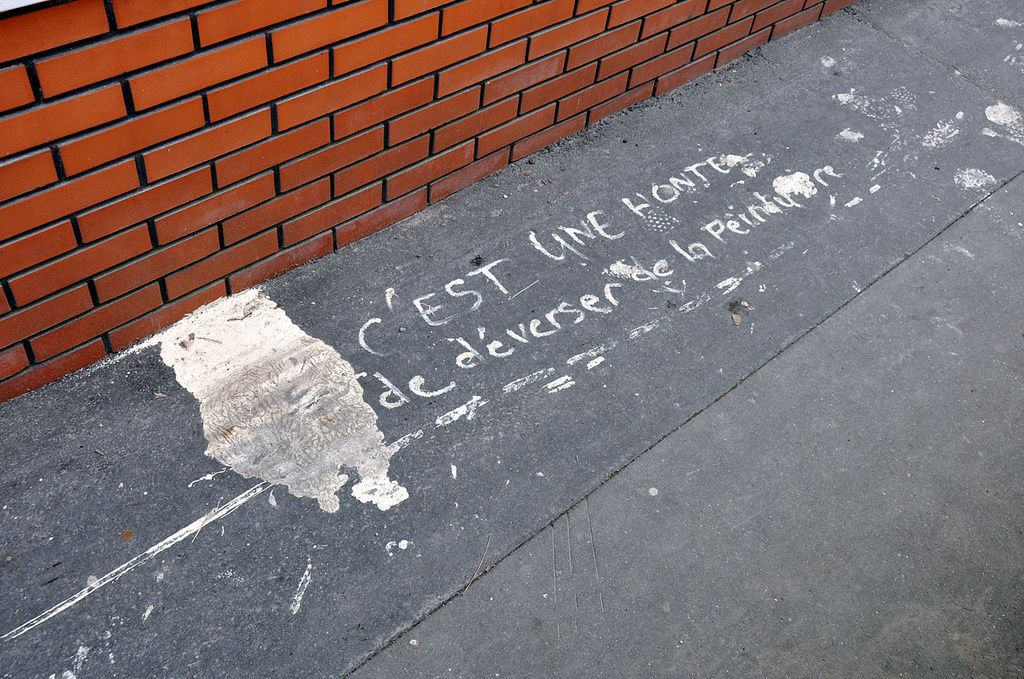 C'EST UNE HONTE
de déverser de la Peinture